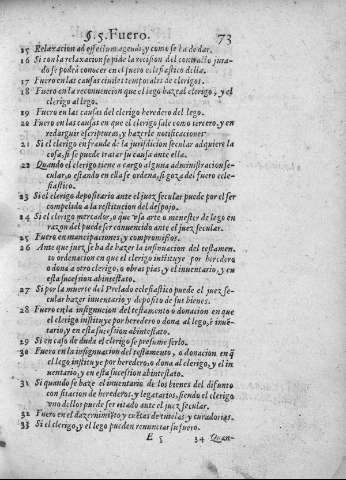 §. 5. Fuero. 73
15 Relaxacion ad effectum agendi, y como se ha de dar.
16 Si con la relaxacion se pide la recision del contracto jura-
do se podrà conocer en el fuero eclesiastico della.
17 Fuero en las causas ciuiles temporales de clerigos.
18 Fuero en la reconuencion que el lego haze al clerigo, y el
clerigo al lego.
19 Fuero en las causas del clerigo heredero del lego.
20 Fuero en las causas en que el clerigo sale como tercero, y en
redarguir escripturas, y hazerle notificaciones
21 Si el clerigo en fraude de la jurisdicion secular adquiere la
cosa, si se puede tratar su causa ante ella.
22 Quando el clerigo tiene a cargo alguna administracion se-
cular, o estando en ella se ordena, si goza del fuero ecle-
siastico.
23 Si el clerigo depositario ante el juez secular puede por el ser
compelido a la restitucion del despojo.
24 Si el clerigo mercader, o que vsa arte o menester de lego en
razon del puede ser conuenido ante el juez secular.
25 Fuero en emancipaciones, y compromissos.
26 Ante que juez, se ha de hazer la insinuacion del testamen-
to ordenacion en que el clerigo instituye por heredero
o dona a otro clerigo, o obras pias, y el inuentario, y en
esta sucesion abintestato.
27 Si por la muerte del Prelado eclesiastico puede el juez se-
cular hazer inuentario y deposito de sus bienes.
28 Fuero en la insignucion del testamento o donacion en que
el clerigo instituye por heredero o dona al lego, è inuē-
tario, y en esta sucesion abintestato.
29 Si en caso de duda el clerigo se presume serlo.
30 Fuero en la insignuacion del testamento, o donacion en q̃
el lego instituye por heredero, o dona al clerigo, y el in
uentario, y en esta sucesion abintestato.
31 Si quando se haze el inuentario de los bienes del difunto
con sitacion de herederos, y legatarios, siendo el clerigo
vno dellos puede ser citado ante el juez secular.
32 Fuero en el dazernimiẽto y cuẽtas de tutelas y curadorias.
33 Si el clerigo, y el lego pueden renunciar su fuero.
E 5 34 Quan-